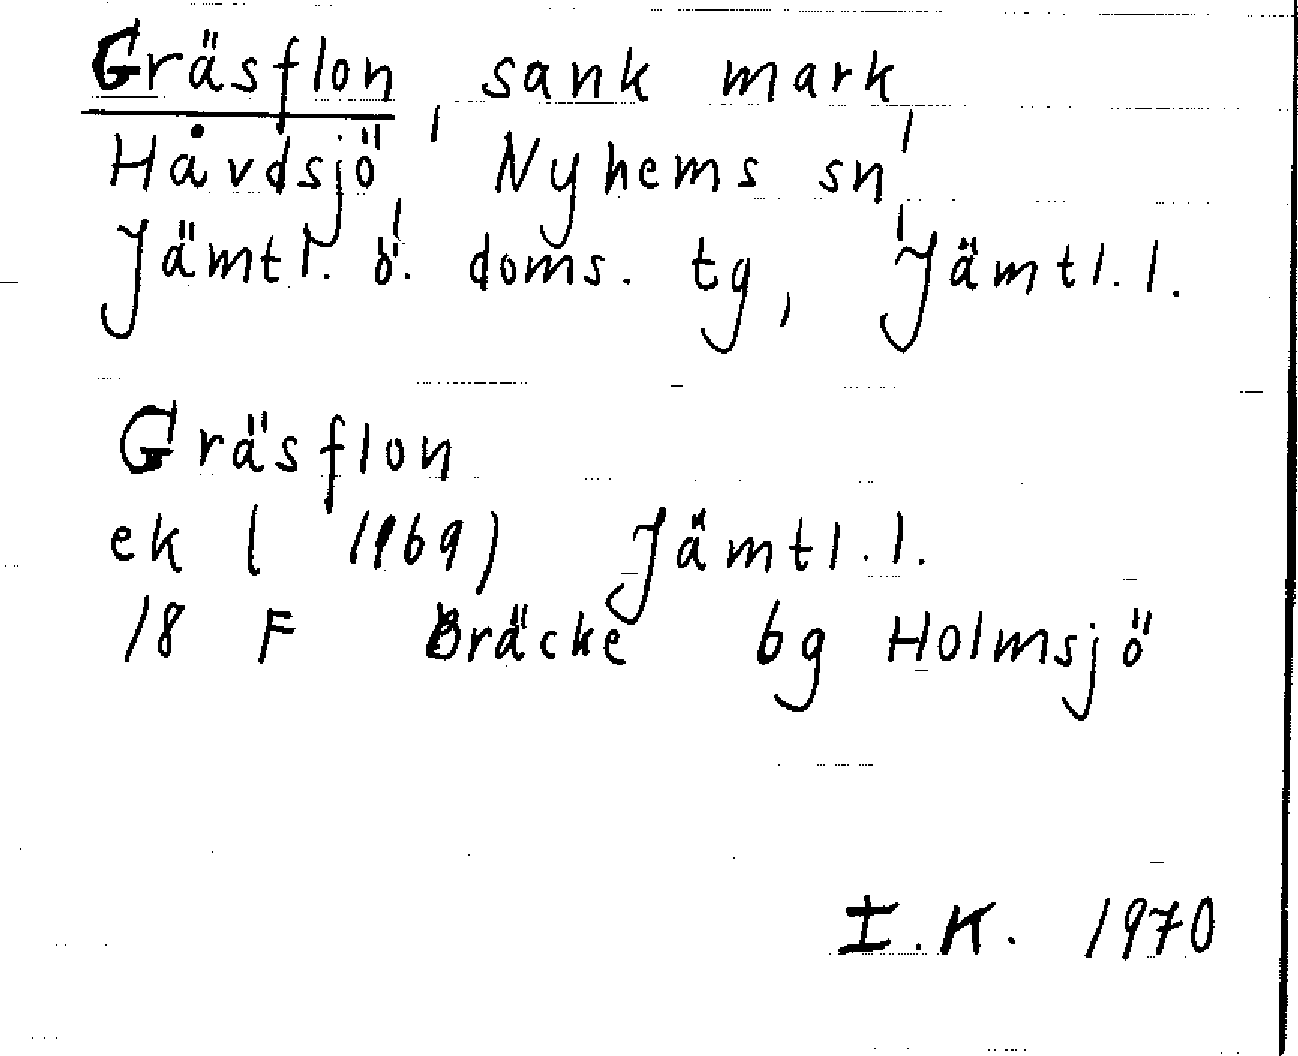 Gräsflon, sank mark,
Håvdsjö, Nyhems sn,
Jämtl. ö. doms. tg, Jämtl. l.
Gräsflon
ek ( 1969) Jämtl. l.
18 F Bräcke bg Holmsjö
I.K. 1970